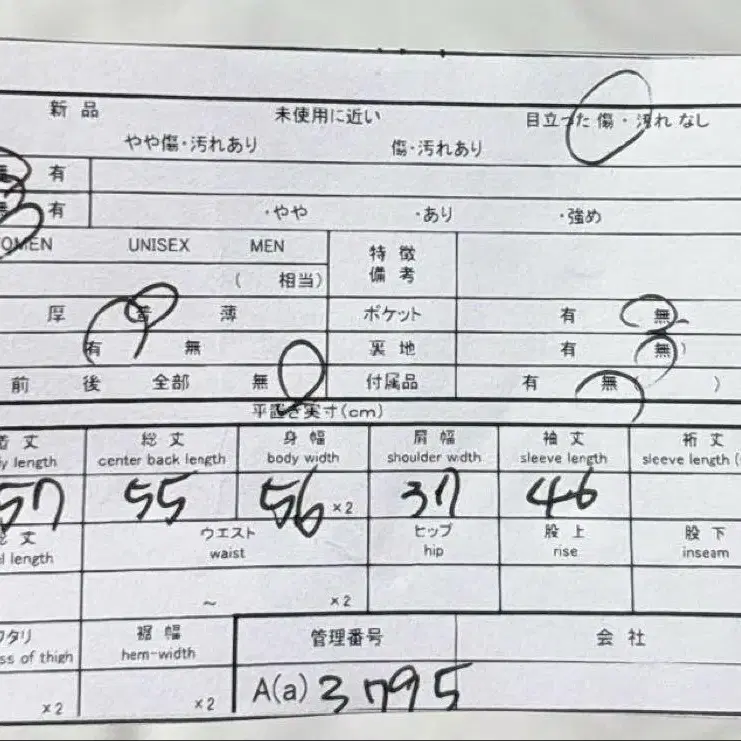 新品 未使用に近い 目立った傷・汚れなし
やや傷・汚れあり 傷・汚れあり
有
有 ・やや ・あり ・強め
OMEN UNISEX MEN 特徴
備考
( 相当)
厚 普 薄 ポケット 有 無
有 無 裏地 有 無 )
前 後 全部 無 付属品 有 無 ( )
平置き実寸(cm)
着丈 総丈 身幅 肩幅 袖丈 裄丈
y length center back length body width shoulder width sleeve length sleeve length (
57 55 56 ×2 37 46
総丈 ウエスト ヒップ 股上 股下
l length waist hip rise inseam
~ ×2
ワタリ 裾幅 管理番号 会社
ss of thigh hem-width
×2 ×2 A(a) 3795